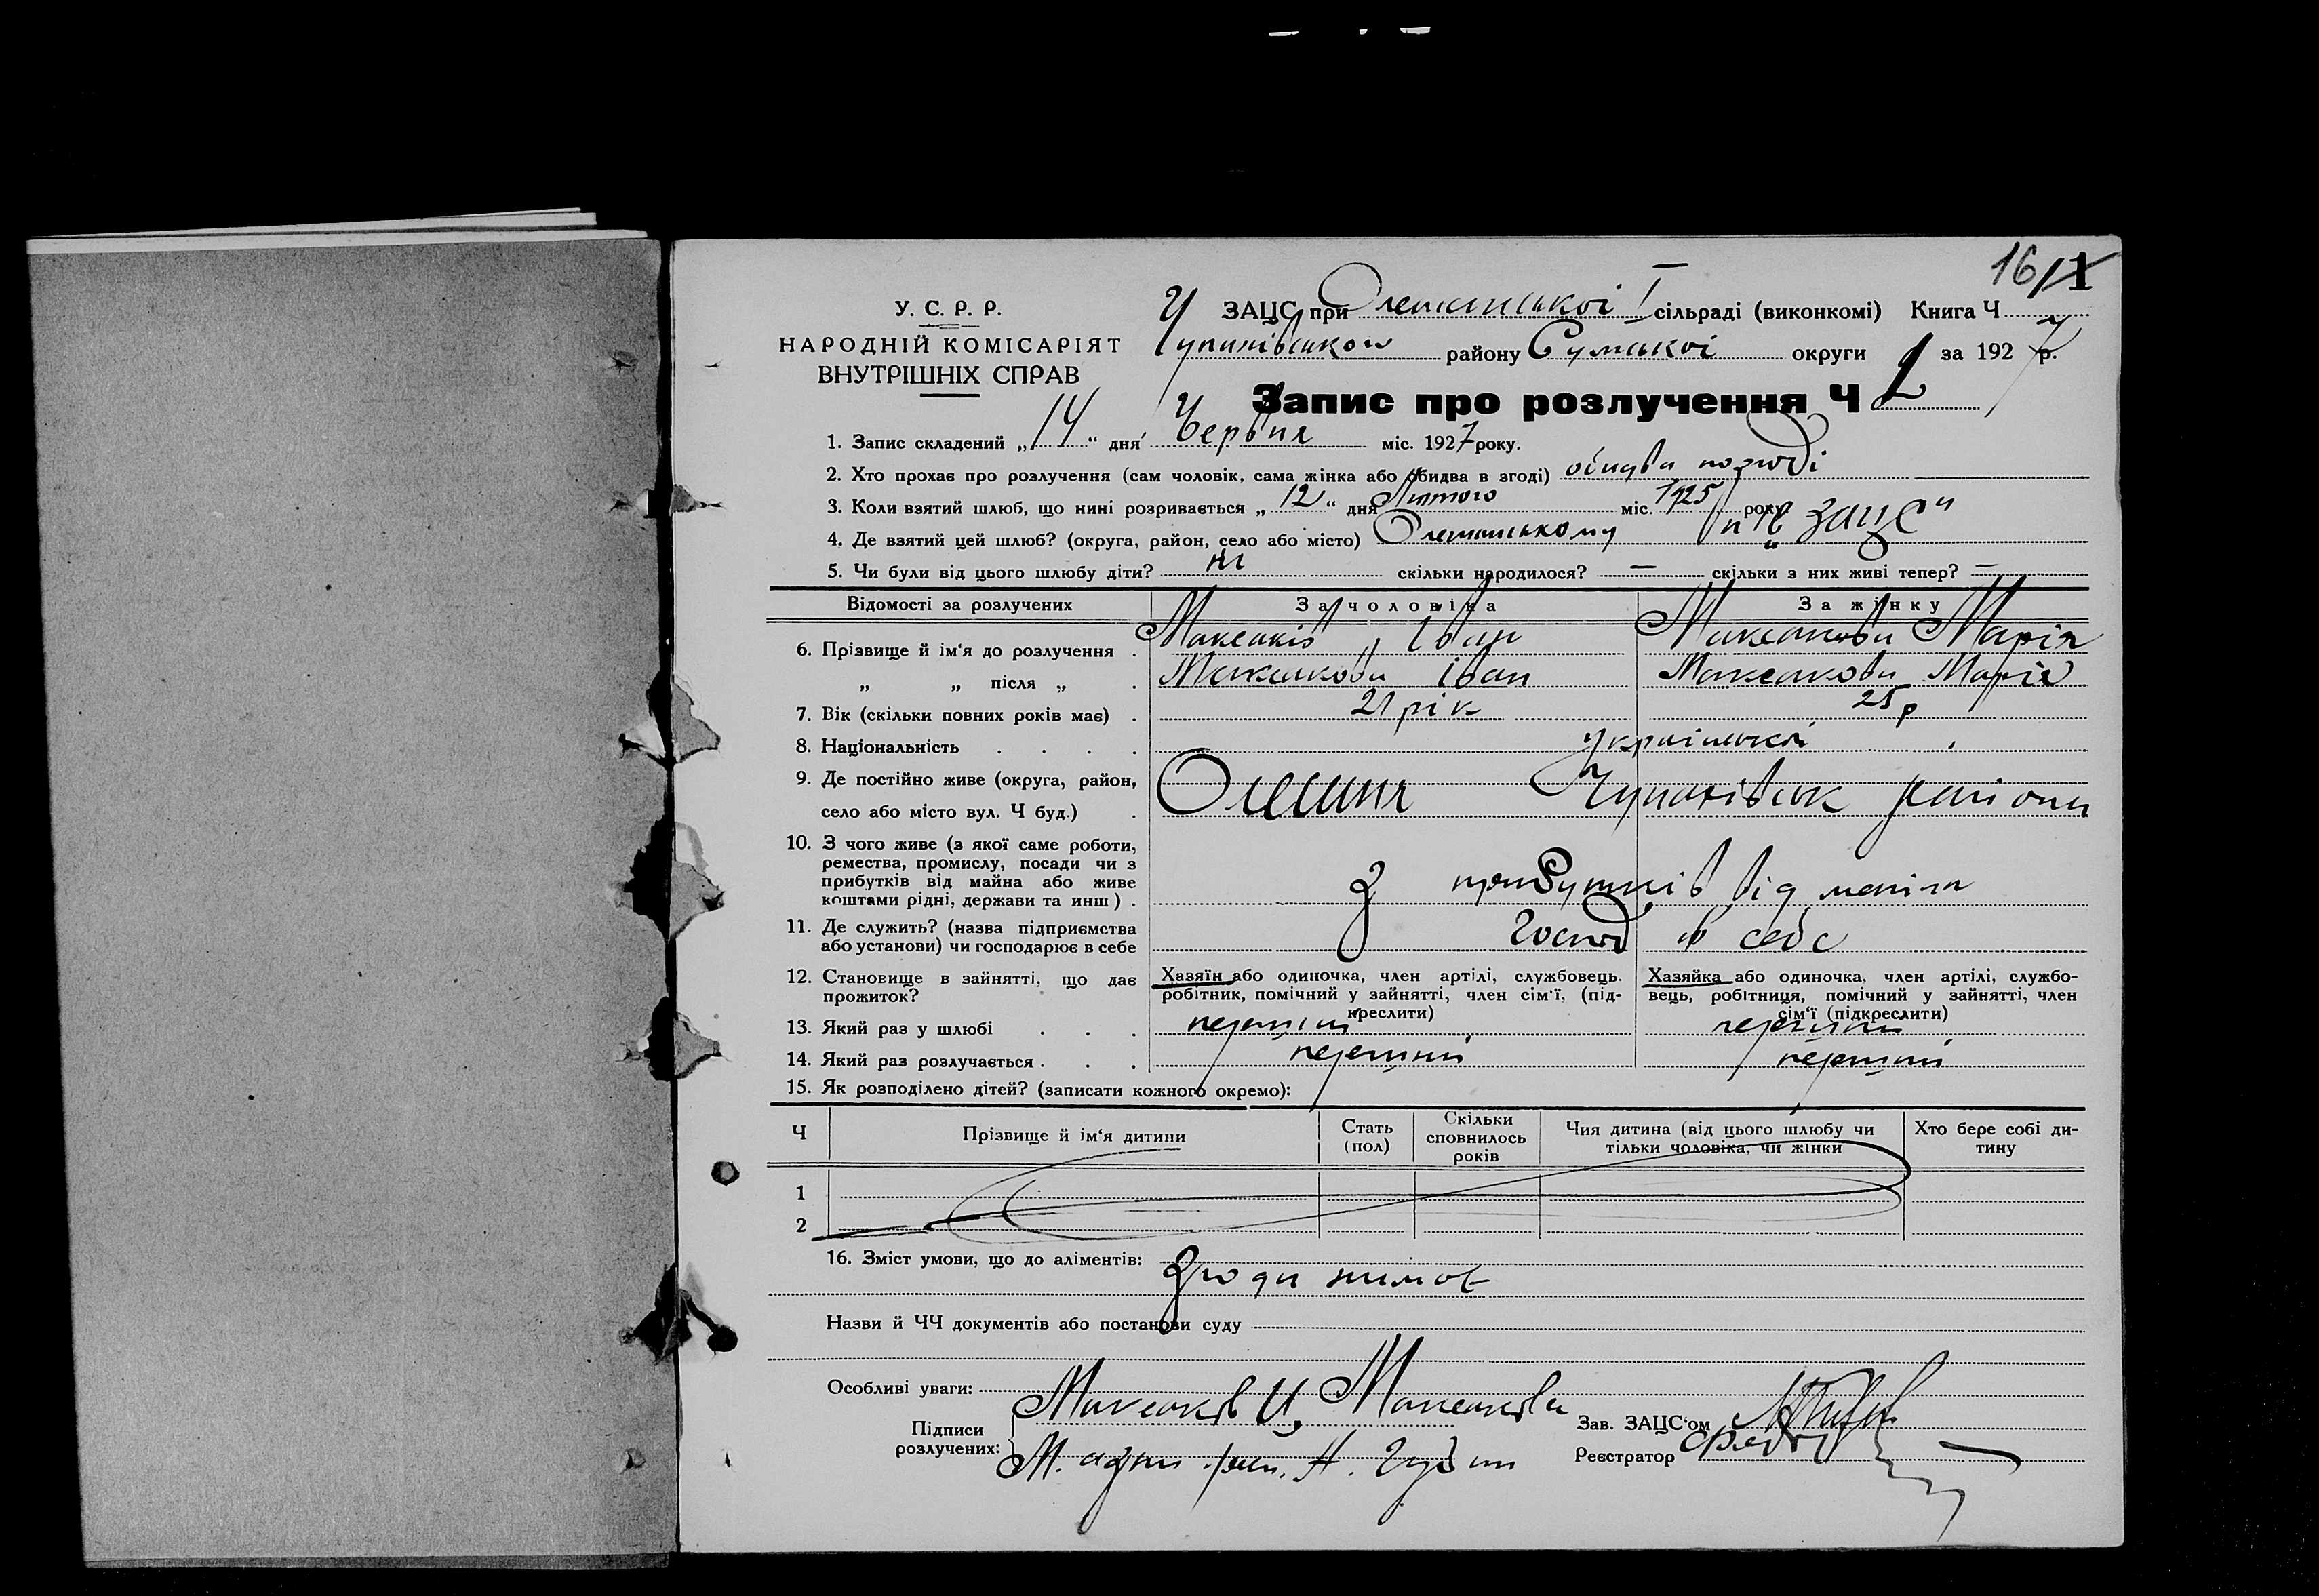 16/1
У. С. Р. Р.
НАРОДНІЙ КОМІСАРІЯТ
ВНУТРІШНІХ СПРАВ
У ЗАЦС при Олешанської І сільраді (виконкомі) Книга Ч
Чупахівського району Сумської округи за 1927 р.
Запис про розлучення Ч 1
1. Запис складений „ 14 “ дня Червня міс. 1927 року.
2. Хто прохає про розлучення (сам чоловік, сама жінка або обидва в згоді) обидва по згоді
3. Коли взятий шлюб, що нині розривається „ 12 “ дня Лютого міс. 1925 року
4. Де взятий цей шлюб? (округа, район, село або місто) Олешанському „ЗАЦС“
5. Чи були від цього шлюбу діти? ні скільки народилося? — скільки з них живі тепер? —
Відомості за розлучених За чоловіка За жінку
6. Прізвище й ім‘я до розлучення . Максаків Іван Максакова Марія
„ „ після „ . Максакова Іван Максакова Марія
7. Вік (скільки повних років має) . 21 рік 25 р
8. Національність . . . . української
9. Де постійно живе (округа, район,
село або місто вул. Ч буд.) . Олешня Чупахівськ району
10. З чого живе (з якої саме роботи,
ремества, промислу, посади чи з
прибутків від майна або живе
коштами рідні, держави та инш ) . З прибутків від майна
11. Де служить? (назва підприємства
або установи) чи господарює в себе Господ в себе
12. Становище в зайнятті, що дає
прожиток?
Хазяїн або одиночка, член артілі, службовець.
робітник, помічний у зайнятті, член сім‘ї, (під-
креслити)
Хазяйка або одиночка, член артілі, службо-
вець, робітниця, помічний у зайнятті, член
сім‘ї (підкреслити)
13. Який раз у шлюбі . . . перший перший
14. Який раз розлучається . . . перший перший
15. Як розподілено дітей? (записати кожного окремо):
Ч Прізвище й ім‘я дитини Стать (пол) Скільки сповнилось років Чия дитина (від цього шлюбу чи тільки чоловіка, чи жінки Хто бере собі дитину
1
2
16. Зміст умови, що до аліментів: Згоди нимає
Назви й ЧЧ документів або постанови суду
Особливі уваги:
Підписи
розлучених: Максаков И, Максакова
Зав. ЗАЦС‘ом
Реєстратор